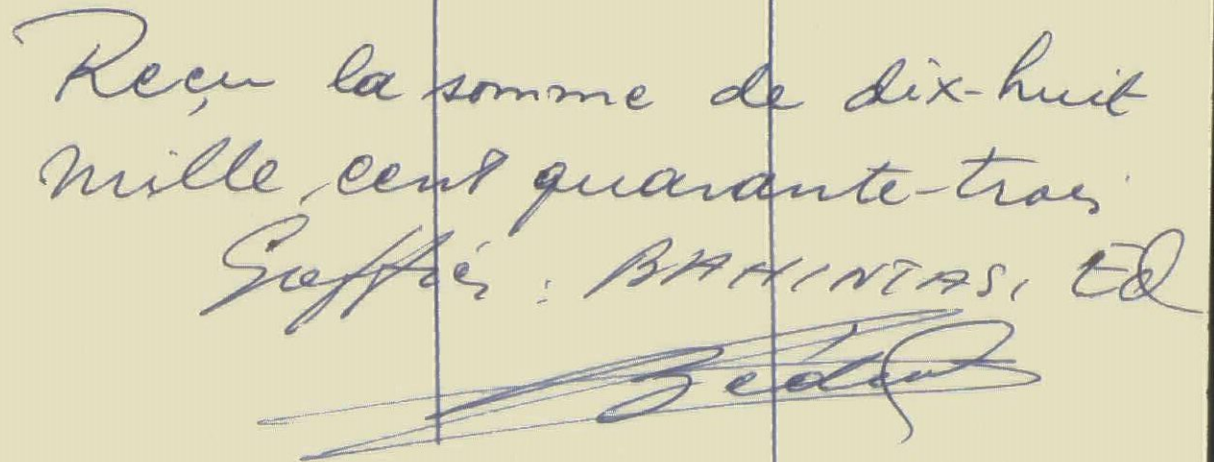 Reçu la somme de dix-huit
mille cent quarante-trois
Greffier : BAHINTASI Ed